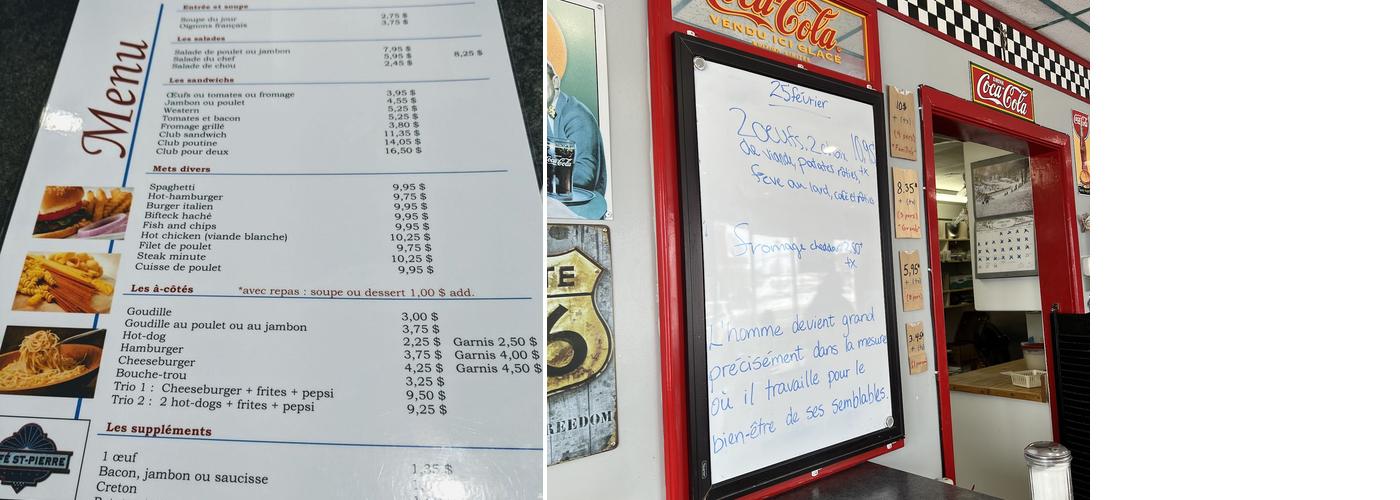 Menu
Entrée et soupe
Soupe du jour 2,75 $
Oignons français 3,75 $
Les salades
Salade de poulet ou jambon 7,95 $ 8,25 $
Salade du chef 5,95 $
Salade de chou 2,45 $
Les sandwichs
Œufs ou tomates ou fromage 3,95 $
Jambon ou poulet 4,55 $
Western 5,25 $
Tomates et bacon 5,25 $
Fromage grillé 3,80 $
Club sandwich 11,35 $
Club poutine 14,05 $
Club pour deux 16,50 $
Mets divers
Spaghetti 9,95 $
Hot-hamburger 9,75 $
Burger italien 9,95 $
Bifteck haché 9,95 $
Fish and chips 9,95 $
Hot chicken (viande blanche) 10,25 $
Filet de poulet 9,75 $
Steak minute 10,25 $
Cuisse de poulet 9,95 $
Les à-côtés *avec repas : soupe ou dessert 1,00 $ add.
Goudille 3,00 $
Goudille au poulet ou au jambon 3,75 $
Hot-dog 2,25 $ Garnis 2,50 $
Hamburger 3,75 $ Garnis 4,00 $
Cheeseburger 4,25 $ Garnis 4,50 $
Bouche-trou 3,25 $
Trio 1 : Cheeseburger + frites + pepsi 9,50 $
Trio 2 : 2 hot-dogs + frites + pepsi 9,25 $
Les suppléments
1 œuf 1,35 $
Bacon, jambon ou saucisse
Creton
FÉ ST-PIERRE
Coca-Cola
VENDU ICI GLACÉ
Coca-Cola
Coca-Cola
25 février
2 oeufs, 2 choix 10,95
de viande, patates rôties, +tx
fève au lard, café et rôties
fromage cheddar 2,50
tx
L'homme devient grand
précisément dans la mesure
où il travaille pour le
bien-être de ses semblables.
10$
8.35
5,95
TE
6
REEDOM